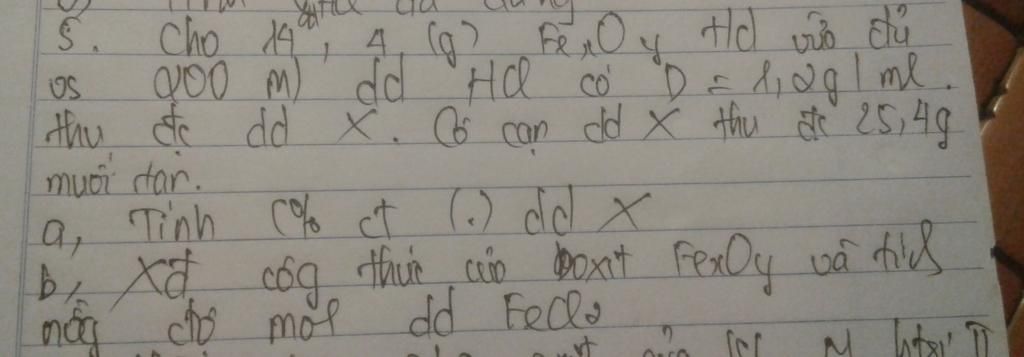 5. Cho 14, 4 (g) FexOy td vừa đủ
vs 200 ml dd HCl có D = 1,2g/ml.
thu đc dd X. Cô cạn dd X thu đc 25,4g
muối tan.
a, Tính C% ct (.) dd X
b, Xđ côg thức của oxit FexOy và tích
nồg độ mol dd FeCl2